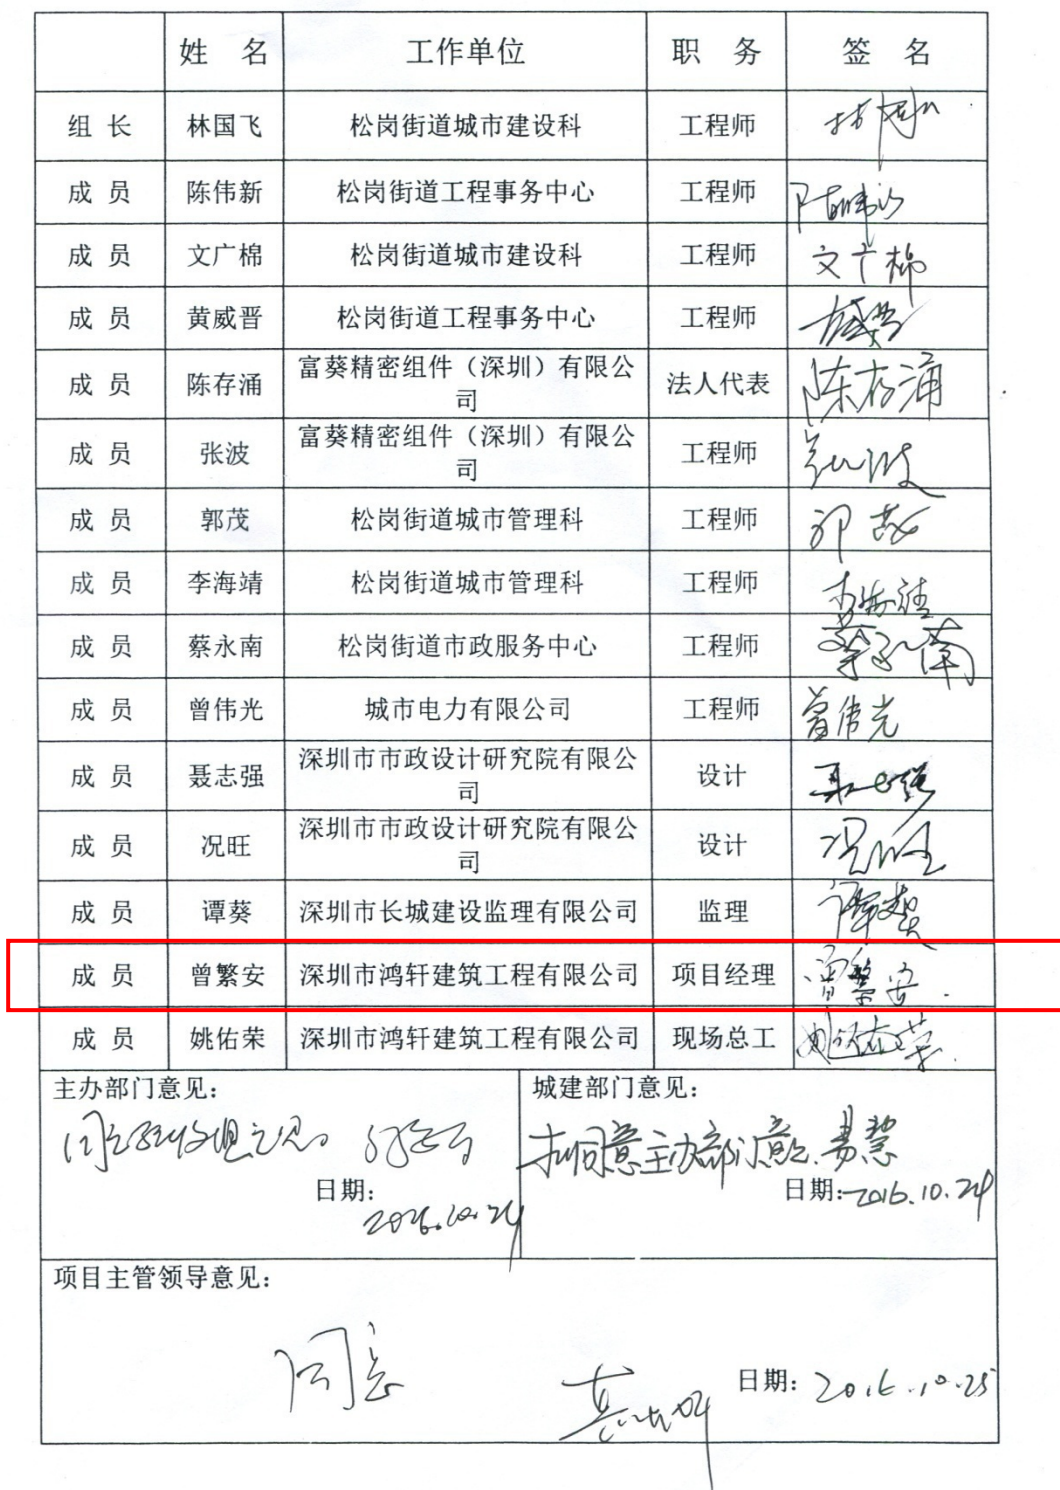 姓 名 工作单位 职 务 签 名
组 长 林国飞 松岗街道城市建设科 工程师
成 员 陈伟新 松岗街道工程事务中心 工程师 陈伟新
成 员 文广棉 松岗街道城市建设科 工程师 文广棉
成 员 黄威晋 松岗街道工程事务中心 工程师
成 员 陈存涌 富葵精密组件（深圳）有限公
司 法人代表 陈存涌
成 员 张波 富葵精密组件（深圳）有限公
司 工程师 张波
成 员 郭茂 松岗街道城市管理科 工程师 郭茂
成 员 李海靖 松岗街道城市管理科 工程师 李海靖
成 员 蔡永南 松岗街道市政服务中心 工程师 蔡永南
成 员 曾伟光 城市电力有限公司 工程师 曾伟光
成 员 聂志强 深圳市市政设计研究院有限公
司 设计 聂志强
成 员 况旺 深圳市市政设计研究院有限公
司 设计 况旺
成 员 谭葵 深圳市长城建设监理有限公司 监理 谭葵
成 员 曾繁安 深圳市鸿轩建筑工程有限公司 项目经理 曾繁安
成 员 姚佑荣 深圳市鸿轩建筑工程有限公司 现场总工 姚佑荣
主办部门意见：
日期：
2016.10.24
城建部门意见：
同意主办部门意见
日期：2016.10.24
项目主管领导意见：
同意
日期：2016.10.25